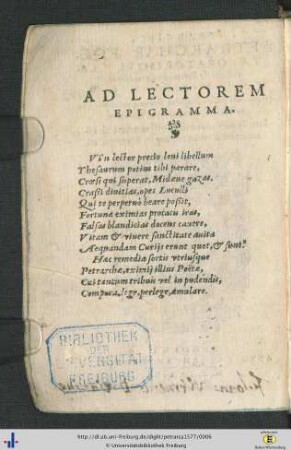 AD LECTOREM
EPIGRAMMA.
Vis'n lector precio leui libellum
Thesaurum potius tibi parare,
Crœsi qui superat, Midæue gazas,
Crassi diuitias, opes Luculli
Qui te perpetuò beare possit,
Fortunæ eximias procacis iras,
Falsas blanditias docens cauere,
Vitam & viuere fœlicitate auita
Aequandam Curijs erunt quot, & sunt?
Hæc remedia sortis vtriusque
Petrarchæ, eximij illius Poëtæ,
Cui tantum tribuit vel inuidendii,
Compara, lege, perlege, æmulare.
BIBLIOTHEK
DER
UNIVERSITÄT
FREIBURG
http://dl.ub.uni-freiburg.de/diglit/petrarca1577/0006
© Universitätsbibliothek Freiburg